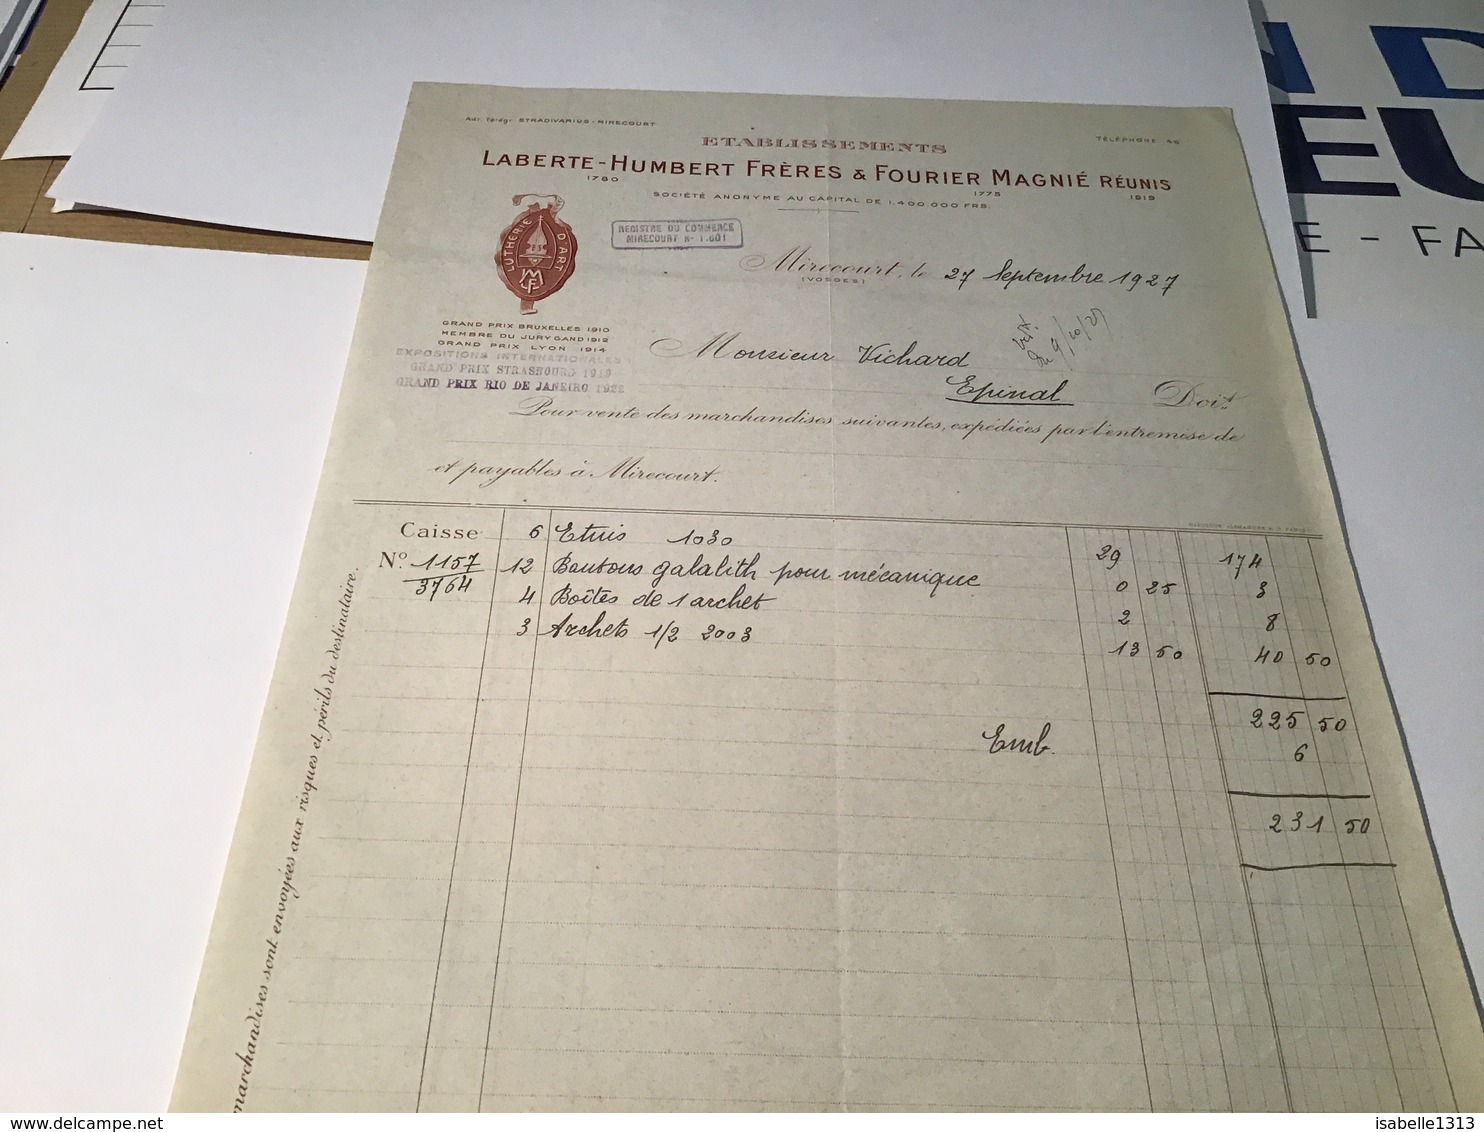 Adr. Télégr. STRADIVARIUS-MIRECOURT
TÉLÉPHONE 45
ETABLISSEMENTS
LABERTE-HUMBERT FRÈRES & FOURIER MAGNIÉ RÉUNIS
1780 1775 1919
SOCIÉTÉ ANONYME AU CAPITAL DE 1.400.000 FRS.
REGISTRE DU COMMERCE
MIRECOURT Nº 1.601
LUTHERIE D'ART
Mirecourt, le 27 Septembre 1927
(VOSGES)
GRAND PRIX BRUXELLES 1910
MEMBRE DU JURY GAND 1912
GRAND PRIX LYON 1914
EXPOSITIONS INTERNATIONALES
GRAND PRIX STRASBOURG 1919
GRAND PRIX RIO DE JANEIRO 1922
du 9/10/27
Monsieur Vichard
Epinal Doit
Pour vente des marchandises suivantes, expédiées par l'entremise de
et payables à Mirecourt.
Caisse 6 Etuis 1030 29 174
Nº 1157 12 Boutons galalith pour mécanique 0 25 3
3764 4 Boîtes de 1 archet 2 8
3 Archets 1/2 2003 13 50 40 50
225 50
Emb. 6
231 50
marchandises sont envoyées aux risques et périls du destinataire.
www.delcampe.net
isabelle1313